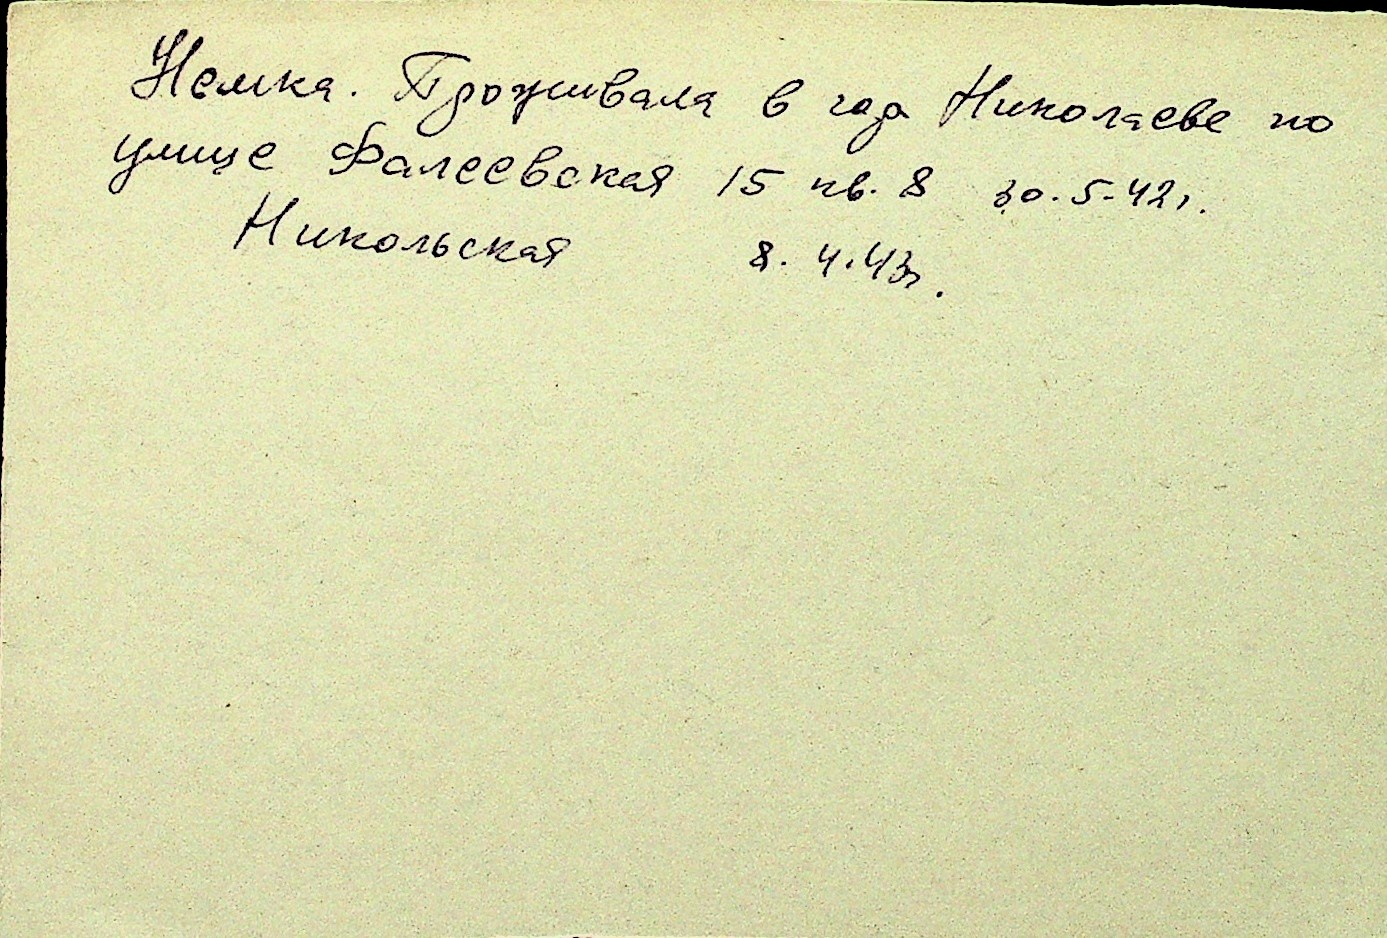 Немка. Проживала в гор Николаеве по
улице Фалеевская 15 кв. 8 30.5.42г.
Никольская 8.4.43г.